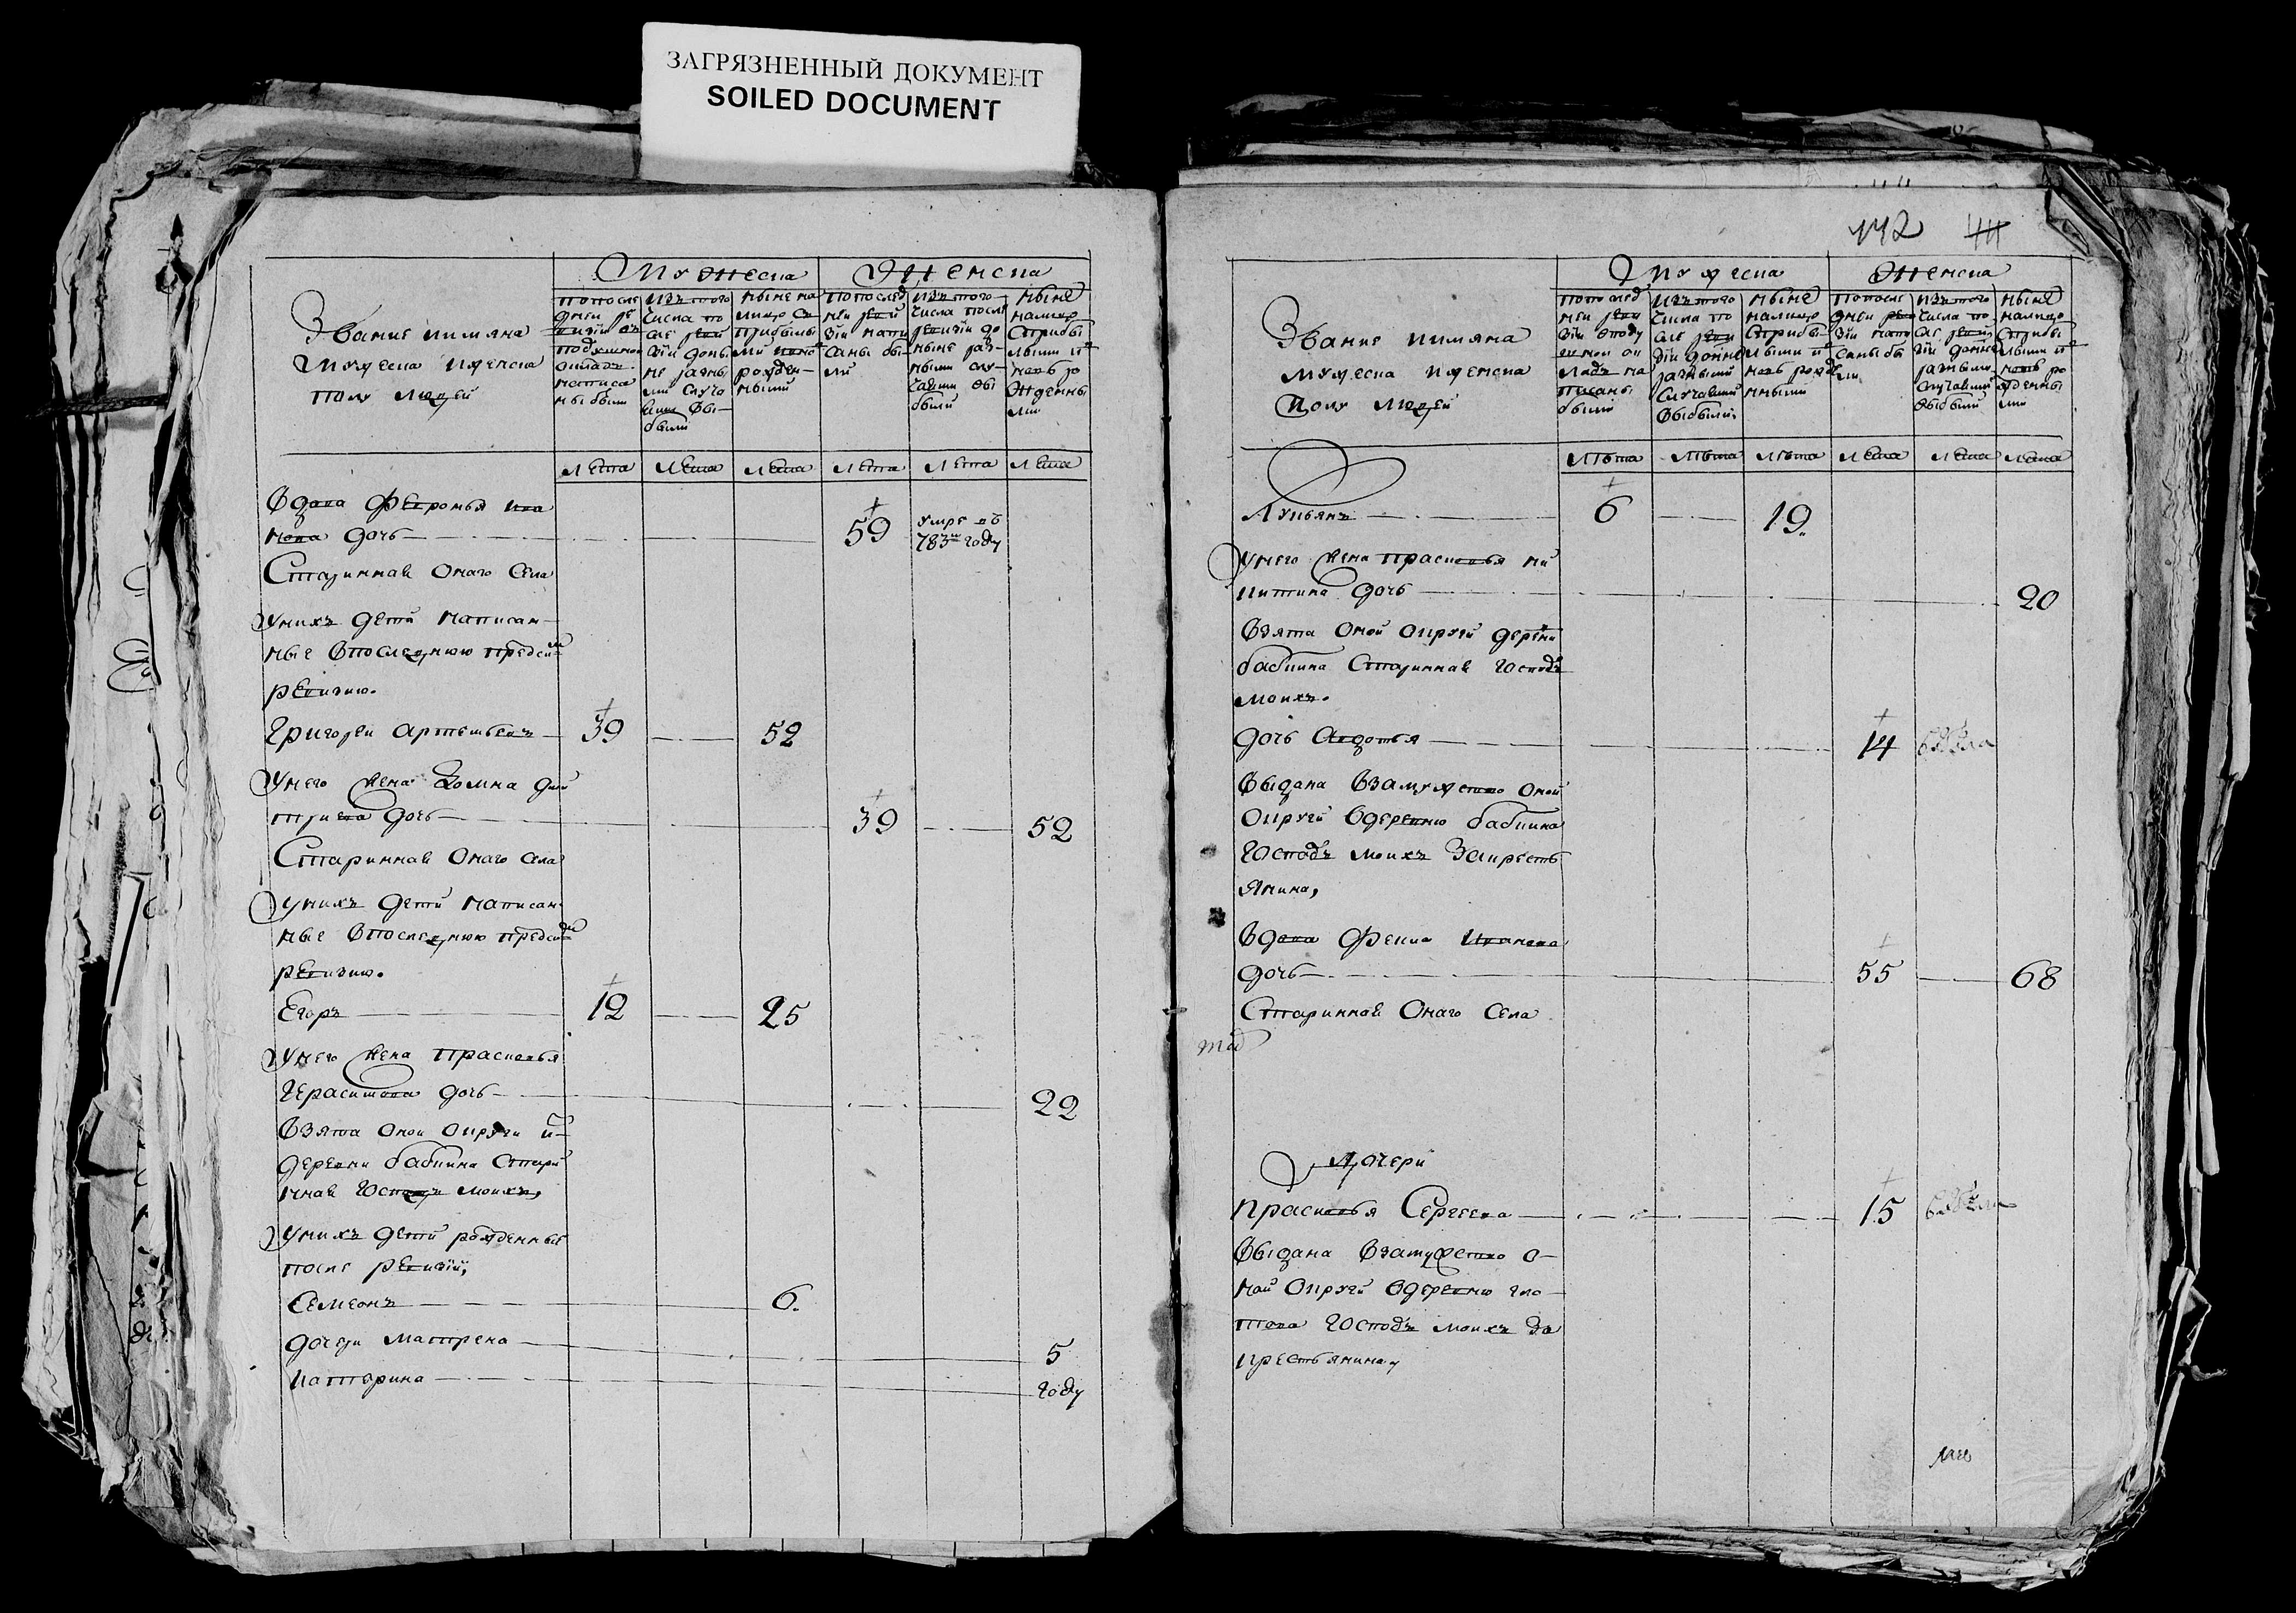 ЗАГРЯЗНЕННЫЙ ДОКУМЕНТ
SOILED DOCUMENT
Мужеска Женска
Звание имяна
Мужеска иженска
полу людей
попосле
дней ре
визіи въ
подушном
окладѣ
написа
ны были
изъ того
числа по
сле реви
зіи доны
не разны
ми случа
ями вы
были
ныне на
лицо съ
прибылы
ми
рожден
ными
попослед
ней реви
зіи напи
саны бы
ли
изъ того
числа после
ревизіи до
ныне раз
ными слу
чаями вы
были
ныне
налицо
сприбы
лыми и
вновь ро
жденны
ми
лета лета лета лета лета лета
Вдова Февронья ива
нова дочь 59 умре въ 783м году
Стариннаѣ онаго села
Унихъ дети написан
ные впоследнюю предсию
ревизию.
Григорей артемьевъ 39 52
Унего жена домна дми
триева дочь 39 52
Стариннаѣ онаго села
Унихъ дети написан
ные впоследнюю предсию
ревизию.
Егоръ 12 25
Унего жена Прасковья
Герасимова дочь 22
Взята оной округи из
деревни бабкина стари
ннаѣ Господъ моихъ,
Унихъ дети рожденные
после ревизіи,
Семеонъ 6.
дочери Матрена 5
Катерина году
142 44
Мужеска Женска
Звание имяна
мужеска иженска
полу людей
попослед
ней реви
зіи вподу
шной ок
ладъ на
писаны
были
изъ того
числа по
сле реви
зіи доныне
разными
случаями
выбыли
ныне
налицо
сприбы
лыми и
новь рожде
нными
попосле
дней реви
зіи напи
саны бы
ли
изъ того
числа по
сле реви
зіи доныне
разными
случаями
выбыли
ныне
налицо
сприбы
лыми и
новь ро
жденны
ми
лѣта лѣта лѣта лета лета лета
Лукьянъ 6 19.
Унего жена прасковья ни
китина дочь 20
Взята оной округи деревни
бабкина Стариннаѣ Господъ
моихъ.
дочь Авдотья 14 выбыла
Выдана взамужство оной
округи вдеревню бабкина
Господъ моихъ за кресть
янина,
вдова Фекла иванова
дочь 55 68
Стариннаѣ онаго села
Дочери
Прасковья Сергеева 15 выбыла
Выдана взамужство о
ной округи вдеревню гло
това Господъ моихъ за
крестьянина,